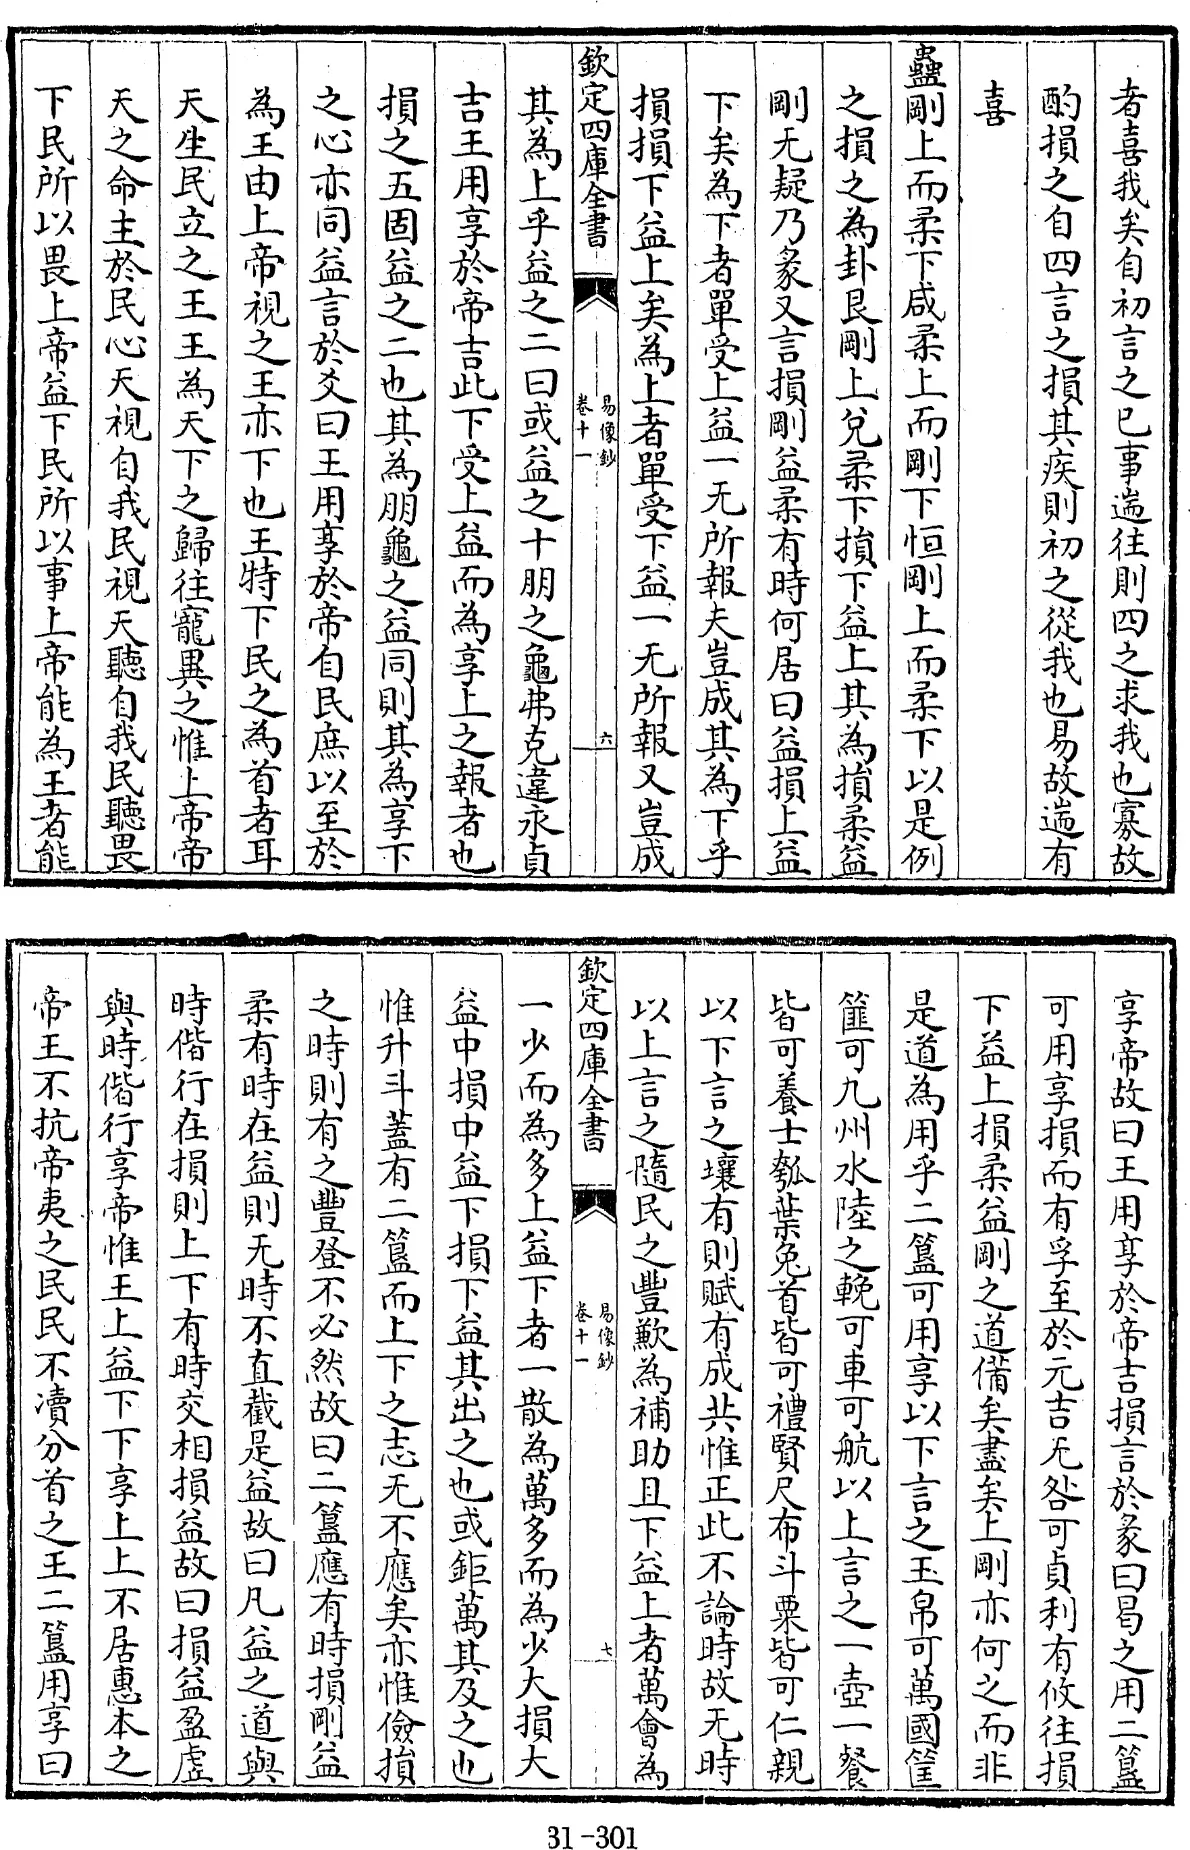 者喜我矣自初言之已事遄往則四之求我也寡故
酌損之自四言之損其疾則初之從我也易故遄有
喜
蠱剛上而柔下咸柔上而剛下恒剛上而柔下以是例
之損之為卦艮剛上兌柔下損下益上其為損柔益
剛无疑乃彖又言損剛益柔有時何居曰益損上益
下矣為下者單受上益一无所報夫豈成其為下乎
損損下益上矣為上者單受下益一无所報又豈成
欽定四庫全書
易像鈔
卷十一
六
其為上乎益之二曰或益之十朋之龜弗克違永貞
吉王用享於帝吉此下受上益而為享上之報者也
損之五固益之二也其為朋龜之益同則其為享下
之心亦同益言於爻曰王用享於帝自民庶以至於
為王由上帝視之王亦下也王特下民之為首者耳
天生民立之王王為天下之歸往寵異之惟上帝帝
天之命主於民心天視自我民視天聽自我民聽畏
下民所以畏上帝益下民所以事上帝能為王者能
享帝故曰王用享於帝吉損言於彖曰曷之用二簋
可用享損而有孚至於元吉无咎可貞利有攸往損
下益上損柔益剛之道備矣盡矣上剛亦何之而非
是道為用乎二簋可用享以下言之玉帛可萬國筐
篚可九州水陸之輓可車可航以上言之一壺一餐
皆可養士瓠葉兔首皆可禮賢尺布斗粟皆可仁親
以下言之壤有則賦有成共惟正此不論時故无時
以上言之隨民之豐歉為補助且下益上者萬會為
欽定四庫全書
易像鈔
卷十一
七
一少而為多上益下者一散為萬多而為少大損大
益中損中益下損下益其出之也或鉅萬其及之也
惟升斗蓋有二簋而上下之志无不應矣亦惟儉損
之時則有之豐登不必然故曰二簋應有時損剛益
柔有時在益則无時不直截是益故曰凡益之道與
時偕行在損則上下有時交相損益故曰損益盈虛
與時偕行享帝惟王上益下下享上上不居惠本之
帝王不抗帝夷之民民不瀆分首之王二簋用享曰
31-301